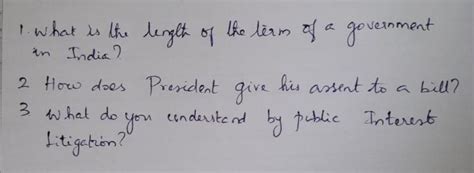 1. What is the length of the term of a government
in India?
2 How does President give his assent to a bill?
3 What do you understand by public Interest
Litigation?